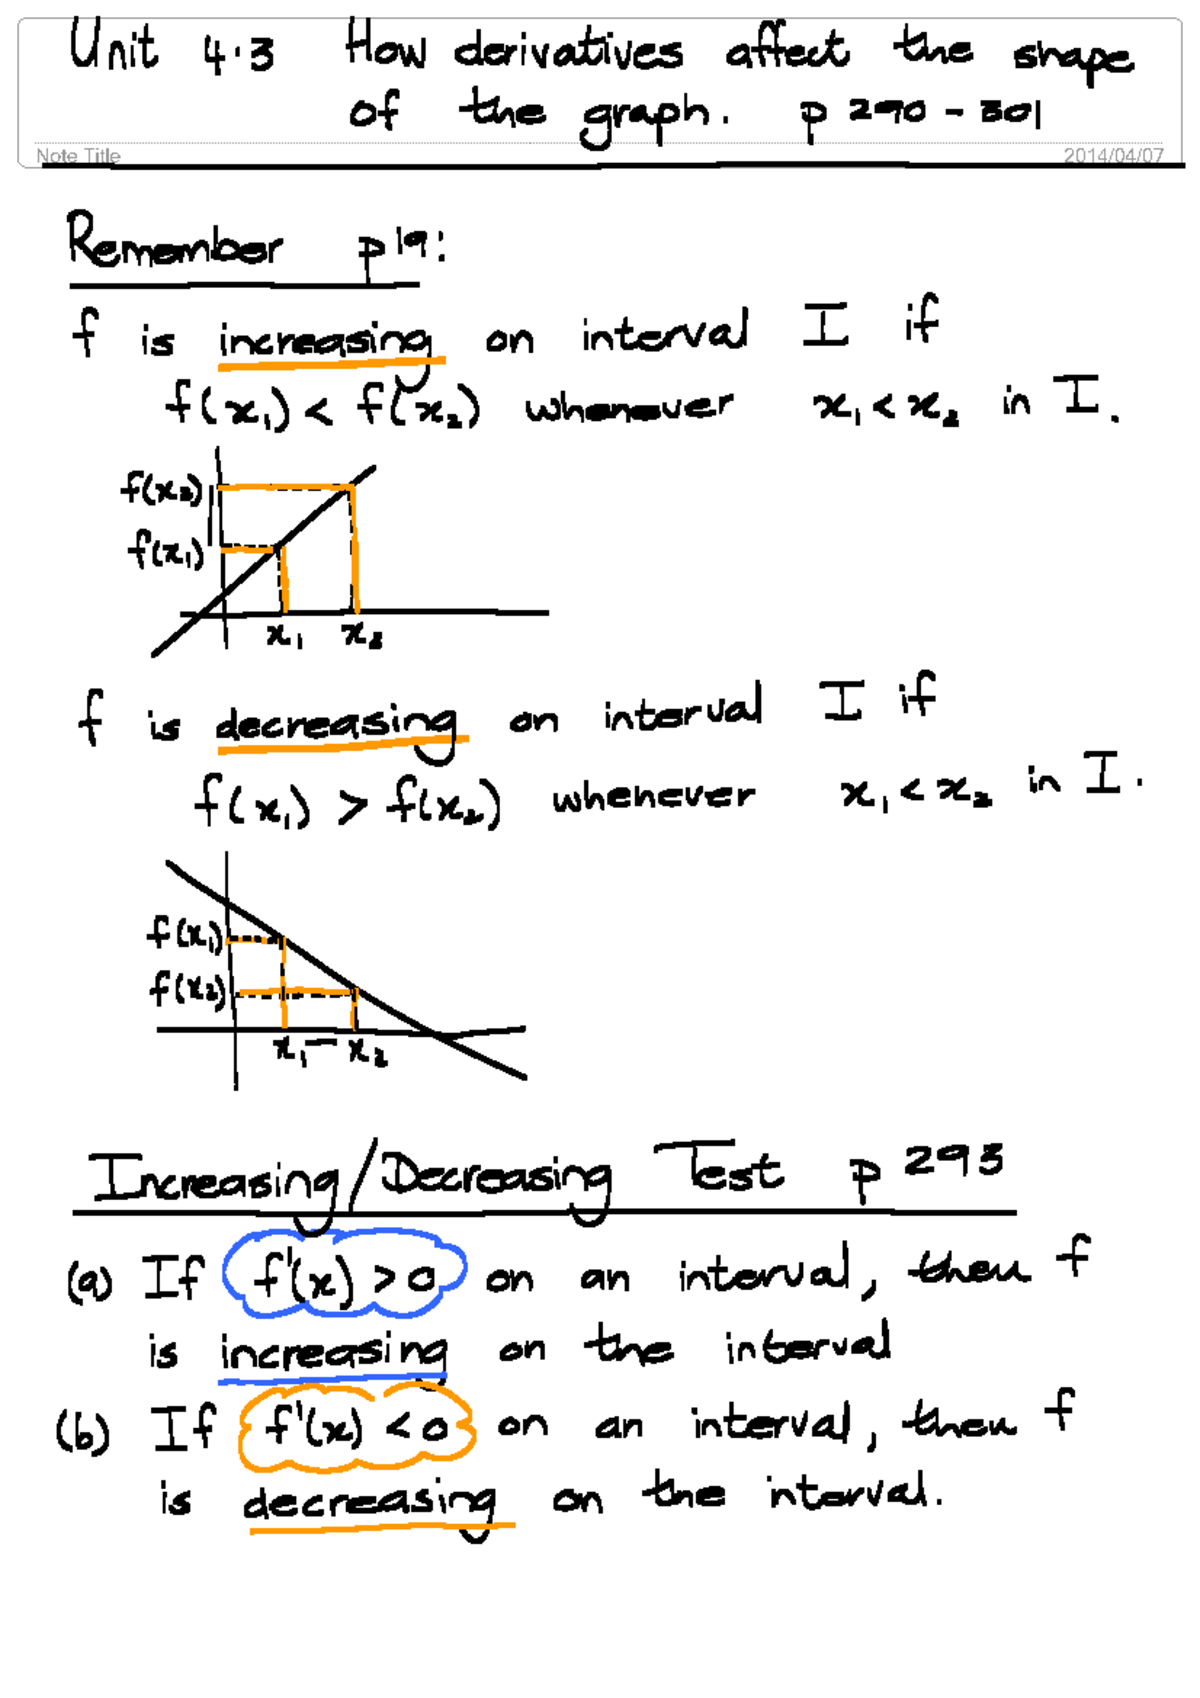 Unit 4.3 How derivatives affect the shape
of the graph. p 290 - 301
Note Title 2014/04/07
Remember p19:
f is increasing on interval I if
f(x₁) < f(x₂) whenever x₁ < x₂ in I.
f(x₂)
f(x₁)
x₁ x₂
f is decreasing on interval I if
f(x₁) > f(x₂) whenever x₁ < x₂ in I.
f(x₁)
f(x₂)
x₁ — x₂
Increasing/Decreasing Test p 293
(a) If f'(x) > 0 on an interval, then f
is increasing on the interval
(b) If f'(x) < 0 on an interval, then f
is decreasing on the interval.